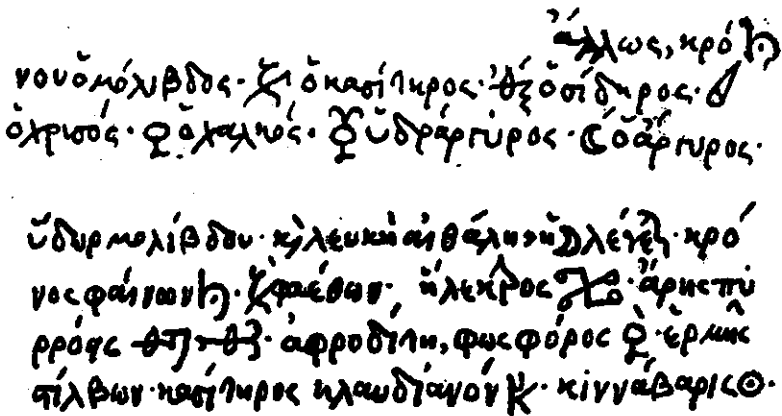 ἄλλως, κρό ♄
νου ὁ μόλιβδος · Ζ ὁ κασίτηρος · ὁ σίδηρος ·
ὁ χρισός · ♀ ὁ χαλκός · ☿ ὑδράργυρος · ☾ ὁ ἄργυρος ·
ὕδωρ μολίβδου · κὶ λευκὴ αἰθάλη · κρό
νος φαίνων ♄ · φαέθων · ἤλεκτρος · ἄρης πυ
ρρόης · ἀφροδίτη, φωςφόρος ♀ · ἑρμῆς
στίλβων · κασίτηρος κλαυδιανόν · κιννάβαρις ☉ ·